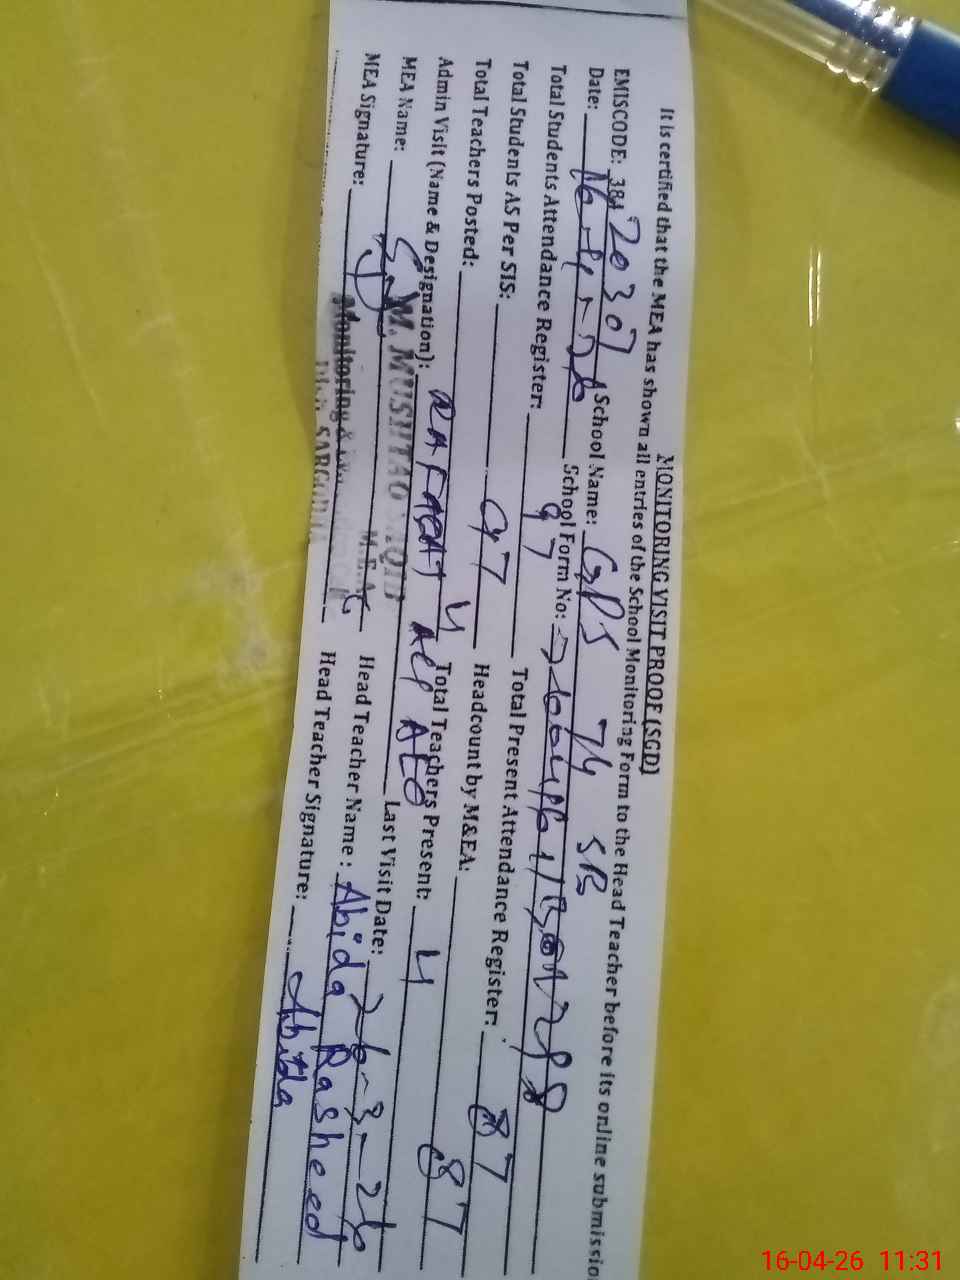 MONITORING VISIT PROOF (SGD)
It is certified that the MEA has shown all entries of the School Monitoring Form to the Head Teacher before its online submission
EMISCODE: 38420307 School Name: GPS 74 SB
Date: 16-4-26 School Form No:
Total Students Attendance Register: 97 Total Present Attendance Register: 87
Total Students AS Per SIS: 97 Headcount by M&EA: 87
Total Teachers Posted: 4 Total Teachers Present: 4
Admin Visit (Name & Designation): AEO Last Visit Date: 26-3-26
MEA Name: M. MUSHTAQ Head Teacher Name: Abida Rasheed
MEA Signature: Head Teacher Signature: Abida
M.E.A
Monitoring &
SARGODHA
16-04-26 11:31